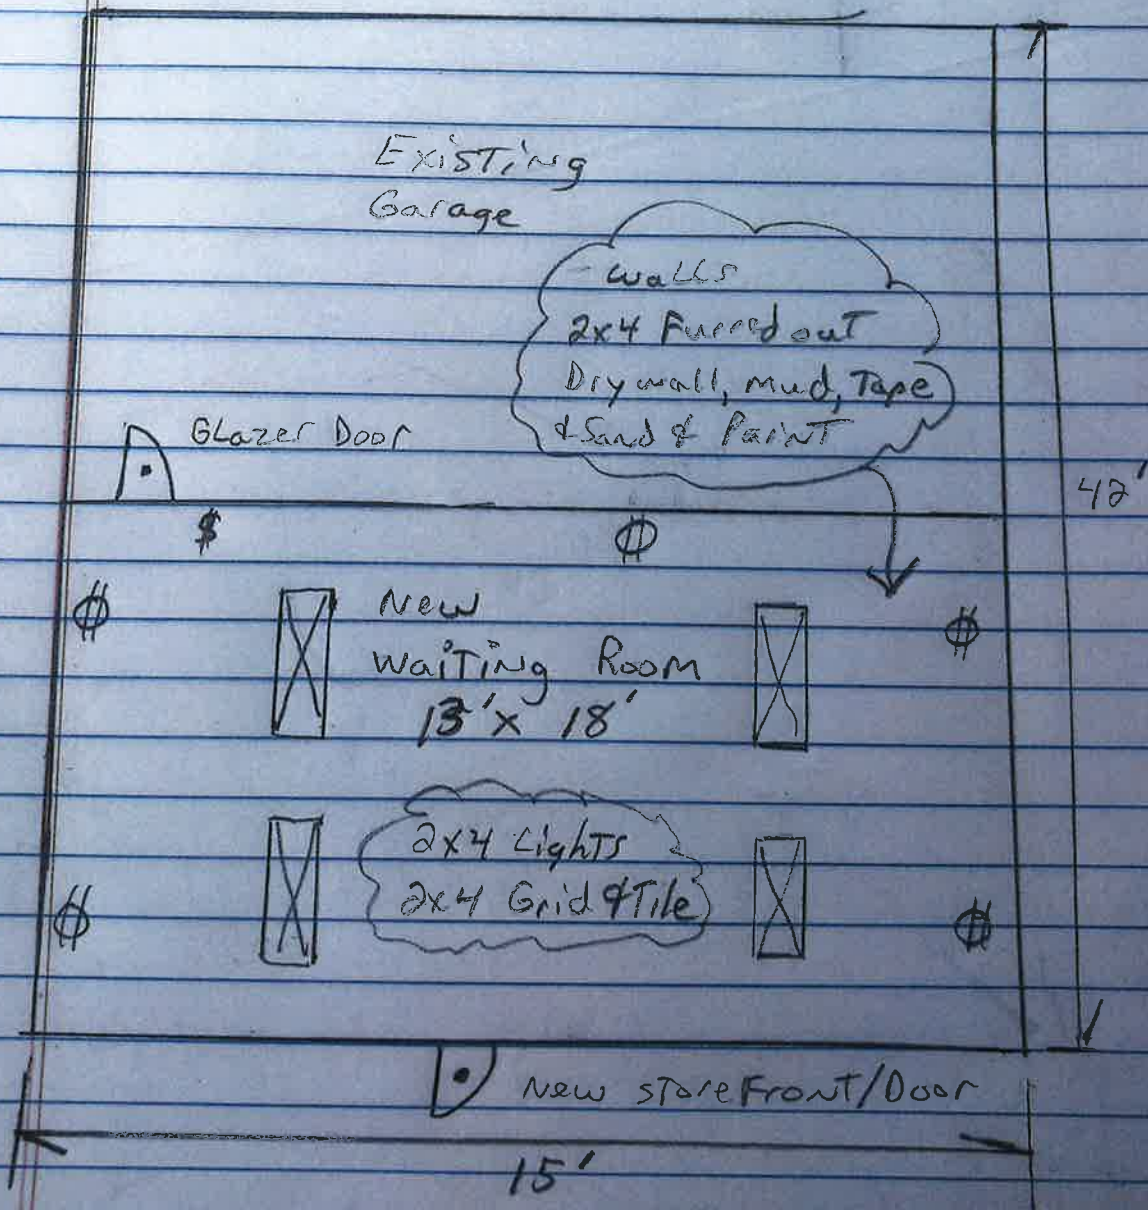 Existing
Garage
walls
2x4 Furred out
Drywall, mud, Tape
& Sand & Paint
Glazer Door
42'
$
New
Waiting Room
13' x 18'
2x4 Lights
2x4 Grid & Tile
New storeFront/Door
15'